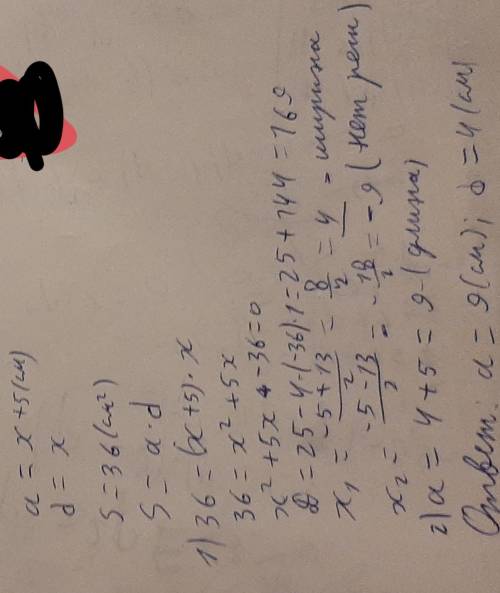 a = x + 5 (см)
d = x
S = 36 (см²)
S = a · d
1) 36 = (x + 5) · x
36 = x² + 5x
x² + 5x - 36 = 0
D = 25 - 4 · (-36) · 1 = 25 + 144 = 169
x₁ = (-5 + 13)/2 = 8/2 = 4 - ширина
x₂ = (-5 - 13)/2 = -18/2 = -9 (нет реш)
2) a = 4 + 5 = 9 - (длина)
Ответ: a = 9 (см); d = 4 (см)